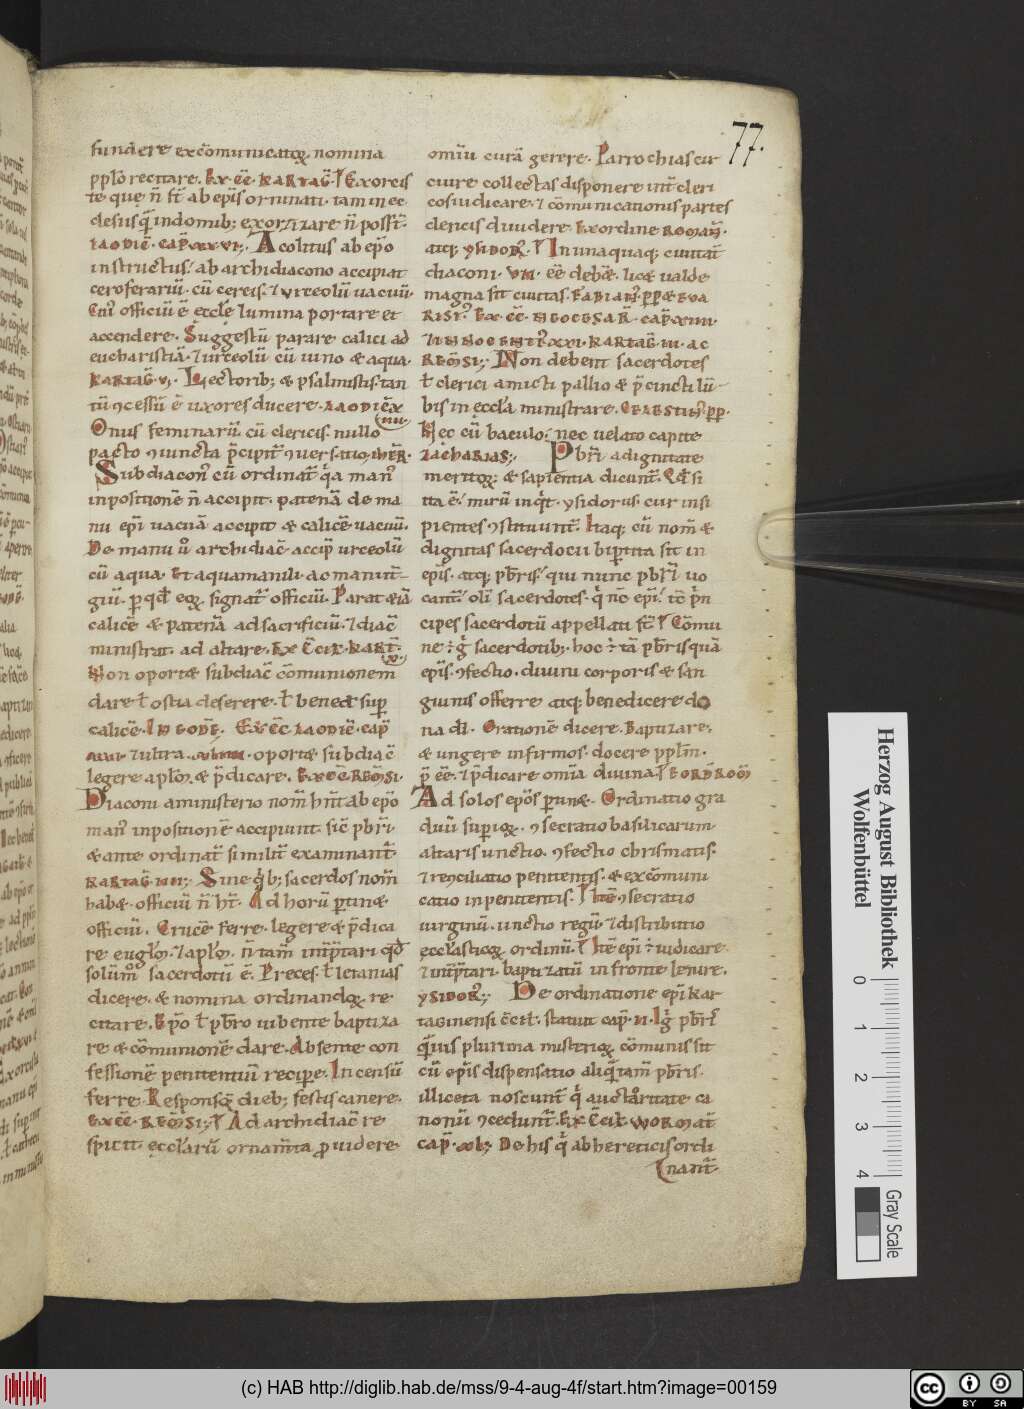 77.
fundere excōmunicatoꝝ nomina
ppl̄o recitare. EX CC̄. KARTAḠ. Exorcis
te que n̄ st̄ ab ep̄is ordinati. tam in ec
clesiis q̄ in domib; exorzizare n̄ poss̄t.
LAODIC̄. CAP̄. XXVI; Acolitus ab ep̄o
instructus. ab archidiacono accipiat
ceroferariū. cū cereis. ⁊ urceolū vacuū.
officiū ē eccl̄e lumina portare et
accendere. Suggestū parare calici ad
eucharistiā. ⁊ urceolū cū uino & aqua.
KARTAḠ. V. Lectorib; & psalmistis tan
tū ꝯcessū ē uxores ducere. LAODIC̄
Onus feminarū cū clericis. nullo
pacto iniuncta p̄cipit̄ ꝯuersatio.
Subdiacon' cū ordinat̄ q̓a man'
inpositionē n̄ accipit. patenā de ma
nu ep̄i vacuā accipit & calicē vacuū.
De manu ů archidiac̄ accip̄ urceolū
cū aqua. Et aquamanili. ac manut̄
giū. p̱ qd̄ eoꝝ signat̄ officiū. Parat etiā
calicē & patenā ad sacrificiū. ⁊ diac̄
ministrat ad altare. EX C̄CIL̄. KART̄.
Non oport& subdiac̄ cōmunionem
dare ł ostia deserere. ł benedict̄ sup̱
calicē. IN EODĒ. EX C̄C̄ LAODIC̄. CAP̄
⁊ ultra. oport& subdiac̄
legere apl̄m. & p̄dicare. EX CC̄ REM̄SI.
Diaconi a ministerio nom̄ hn̄t. Ab ep̄o
man' inpositionē accipiunt. sic̄ pbr̄i.
& ante ordinat̄ similit̄ examinant̄.
KARTAḠ. IIII; Sine q̓b; sacerdos nom̄
hab&. officiū n̄ ht̄. Ad horū p̱tin&
officiū. Crucē ferre. legere & p̄dica
re euḡlm. ⁊ apl̄m. n̄ tam̄ int̄p̱tari. qd̄
solum̄ sacerdotū ē. Preces. ł letanias
dicere. & nomina ordinandoꝝ re
citare. Ep̄o ł pbr̄o iubente baptiza
re & cōmunionē dare. Absente con
fessionē penitentiū recipe̱. Incensū
ferre. Responsoꝝ dieb; festis canere.
EX CC̄. REM̄SI; Ad archidiac̄ re
spicit. eccl̄arū ornam̄ta ꝓuidere
omiū curā gerere. Parrochias cir
cuire collectas disponere int̄ cleri
cos iudicare. ⁊ cōmunicationis partes
clericis diuidere. Ex ordine ROMAN̄.
atq; YSIDOR̄. In unaquaq; ciuitat̄
diaconi. VII. eē deb&. lic& ualde
magna sit ciuitas. FABIAN̄. PP̄. & EVA
RIST̄. EX CC̄. NEOCESAR̄. CAP̄. XIIII.
⁊ INNOCENTI. XXI. KARTAḠ. III. AC
REM̄SI; Non debent sacerdotes
ł clerici amicti pallio & p̄cincti lū
bis in eccl̄a ministrare. CELESTIN̄. PP̄.
Nec cū baculo. nec uelato capite
ZACHARIAS; Pbr̄i a dignitate
meritoꝝ & sapientia dicunt̄. Qd̄ si
ita ē. mirū inq̓t ysidorus. cur insi
pientes ꝯstituunt̄. Itaq; cū nom̄ &
dignitas sacerdocii bip̱tita sit in
ep̄is. atq; pbr̄is. qui nunc pbr̄i uo
cant̄. oli sacerdotes. q̓ nc̄ ep̄i. tc̄ p̄n
cipes sacerdotū appellati st̄. Cōmu
ne ē g̓ sacerdotib;. hoc ē tā pbr̄is quā
ep̄is. ꝯfectio. diuini corporis & san
guinis offerre atq; benedicere do
na dī. Orationē dicere. Baptizare.
& ungere infirmos. docere ppl̄m.
p̄ eē. ⁊ p̄dicare omīa diuina. EORD̄ ROM̄
Ad solos ep̄os p̱tin&. Ordinatio gra
duū sup̱ioꝝ. ꝯsecratio basilicarum.
altaris unctio. ꝯfectio chrismatis.
⁊ reꝯciliatio penitentis. & excōmuni
catio inpenitentis. Itē ꝯsecratio
virginū. unctio regū. ⁊ distributio
eccl̄asticoꝝ ordinū. Itē ep̄i ē iudicare
⁊ int̄p̱tari. baptizatū in fronte lenire.
YSIDOR̄; De ordinatione ep̄i kar
taginensi c̄cil̄. statuit cap̄. II. Iḡ pbr̄i
q̄uis plurima misterioꝝ cōmunis sit
cū ep̄is dispensatio. aliq̄ tam̄ pbr̄is.
illicita noscunt̄ q̓ auctoritate ca
nonū ꝯcedunt̄. EX C̄CIL̄. WORMAT̄
CAP̄. XL; De his q̓ ab hereticis ordi
nant̄
Herzog August Bibliothek
Wolfenbüttel
0 1 2 3 4
Gray Scale
(c) HAB http://diglib.hab.de/mss/9-4-aug-4f/start.htm?image=00159
cc BY SA